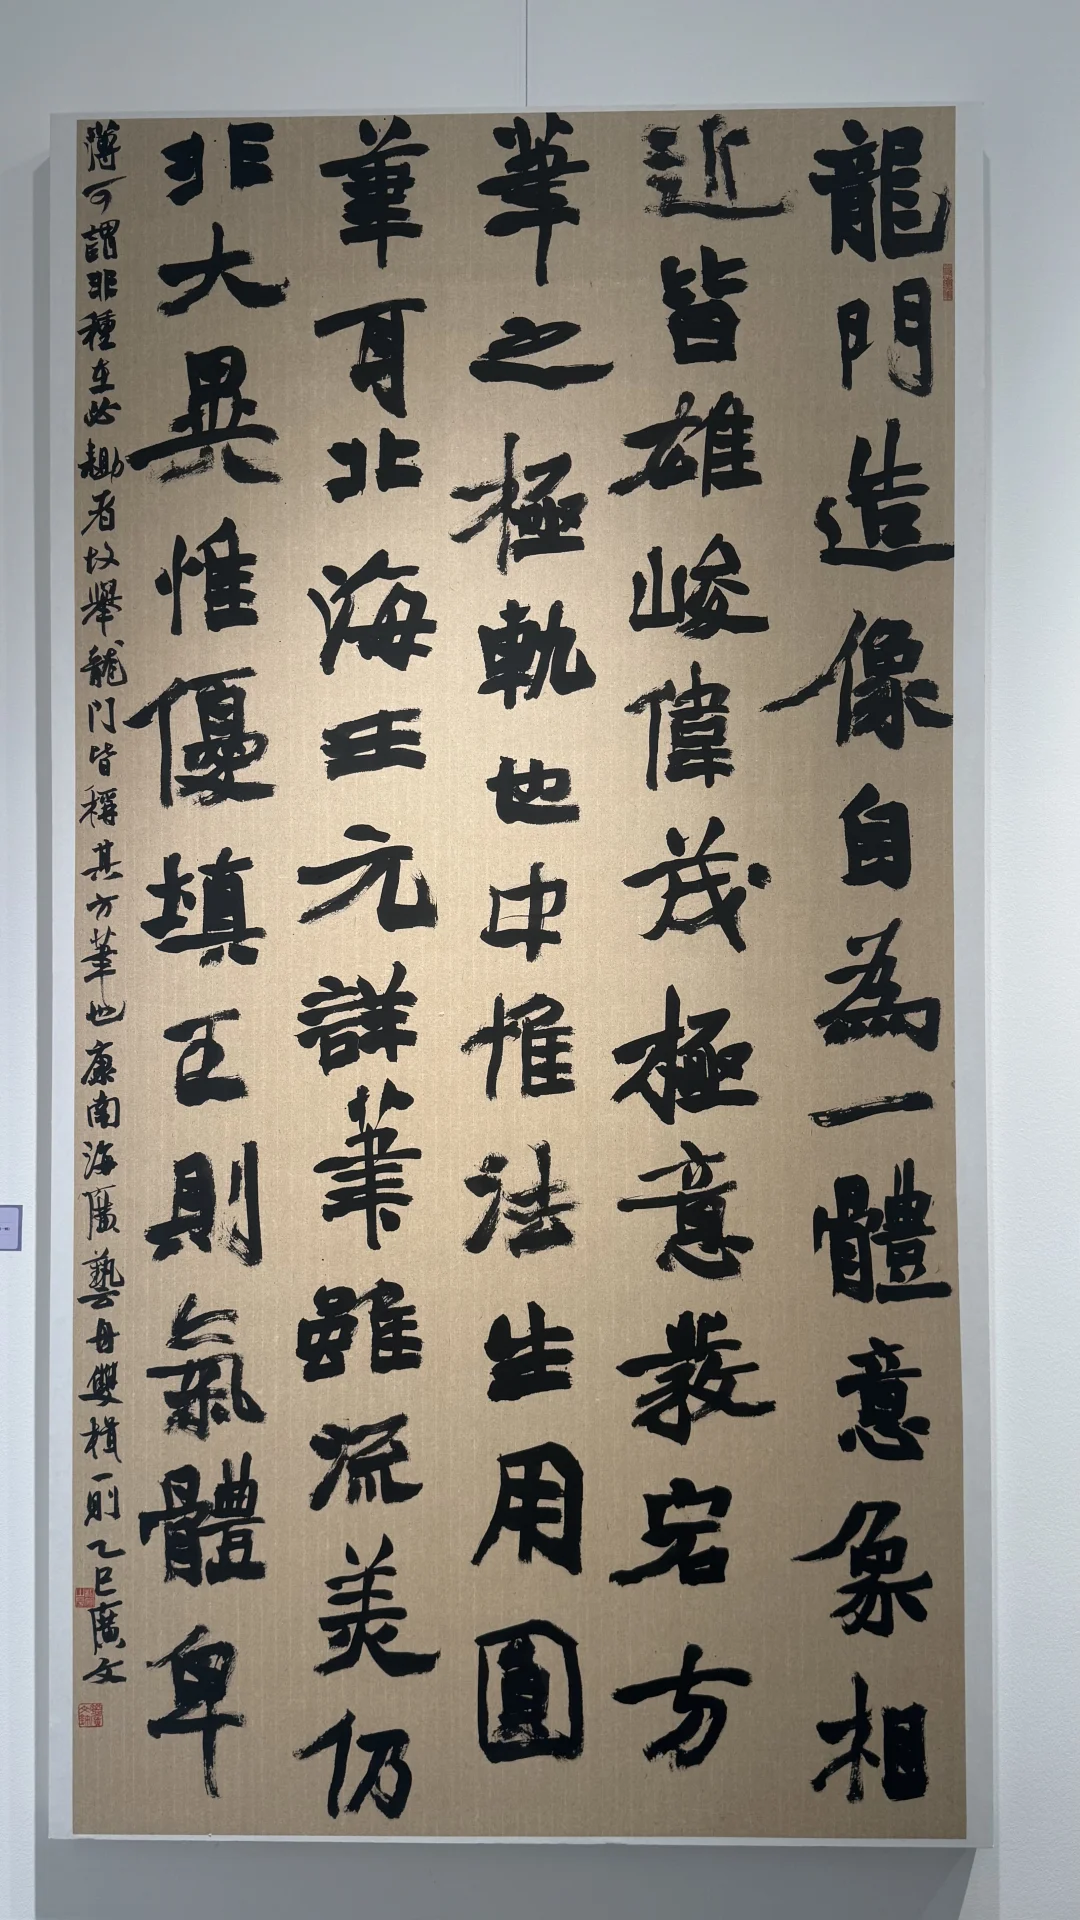 龍門造像自為一體意象相
近皆雄峻偉茂極意發宕方
筆之極軌也中惟法生用圓
筆耳北海王元詳筆雖流美仍
非大異惟優填王則氣體卑
薄可謂非種在必耡者故舉龍門皆稱其方筆也康南海廣藝舟雙楫一則乙巳廣文